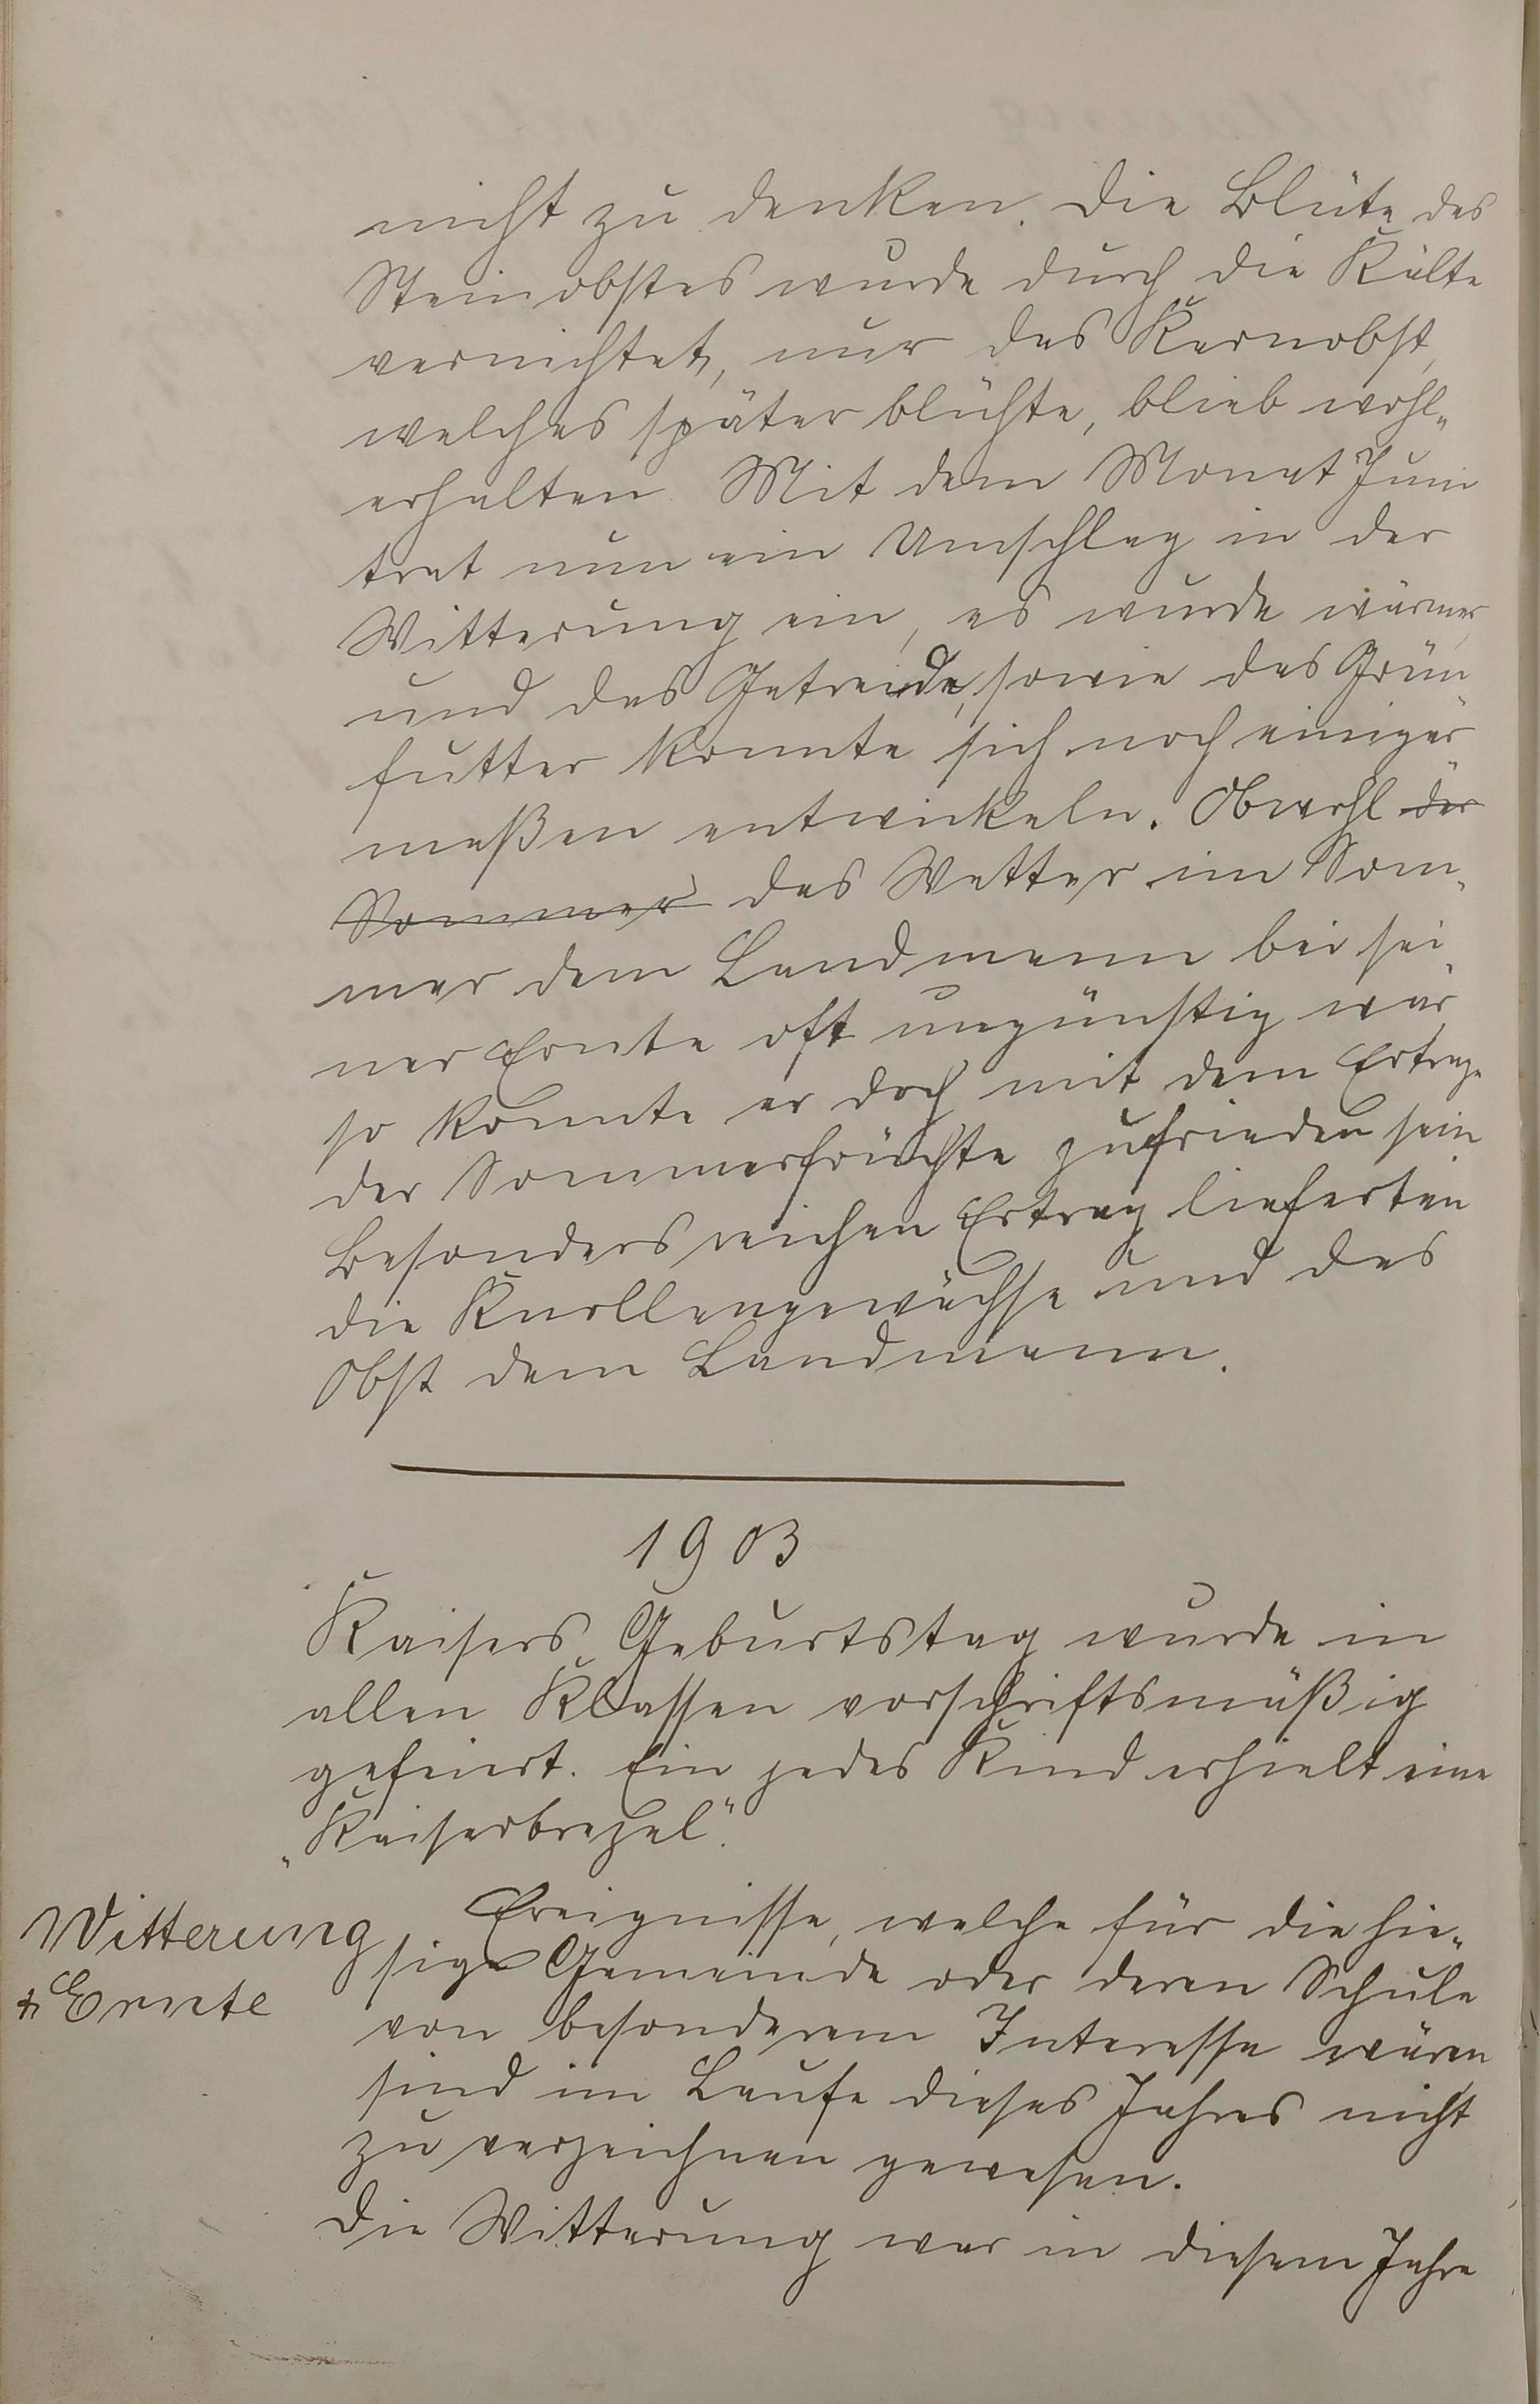 nicht zu denken. Die Blüte des
Steinobstes wurde durch die Kälte
vernichtet, nur das Kernobst,
welches später blühte, blieb wohl-
erhalten. Mit dem Monat Juni
trat nun ein Umschlag in der
Witterung ein, es wurde wärmer,
und das Getreide, sowie das Grün-
futter konnte sich noch einiger-
maßen entwickeln. Obwohl der
Sommer das Wetter im Som-
mer dem Landmann bei sei-
ner Ernte oft ungünstig war,
so konnte er doch mit dem Ertrage
der Sommerfrüchte zufrieden sein
Besonders reichen Ertrag lieferten
die Knollengewächse und das
Obst dem Landmann.
1903
Kaisers Geburtstag wurde in
allen Klassen vorschriftsmäßig
gefeiert. Ein jedes Kind erhielt eine
„Kaiserbrezel".
Witterung
& Ernte
Ereignisse, welche für die hie-
sige Gemeinde oder deren Schule
von besonderem Interesse wären
sind im Laufe dieses Jahres nicht
zu verzeichnen gewesen.
Die Witterung war in diesem Jahre